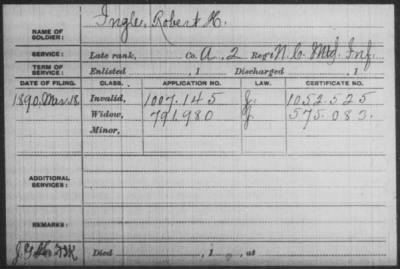 Ingle, Robert H.
NAME OF SOLDIER:
SERVICE: Late rank, Co. A, 2 Reg't N.C. Mtd. Inf.
TERM OF SERVICE: Enlisted , 1 Discharged , 1
DATE OF FILING. CLASS. APPLICATION NO. LAW. CERTIFICATE NO.
1890, Mar 18. Invalid, 1007.145 J. 1052.525
Widow, 791980 J 575.083.
Minor,
ADDITIONAL SERVICES:
REMARKS:
Died , 1 , at